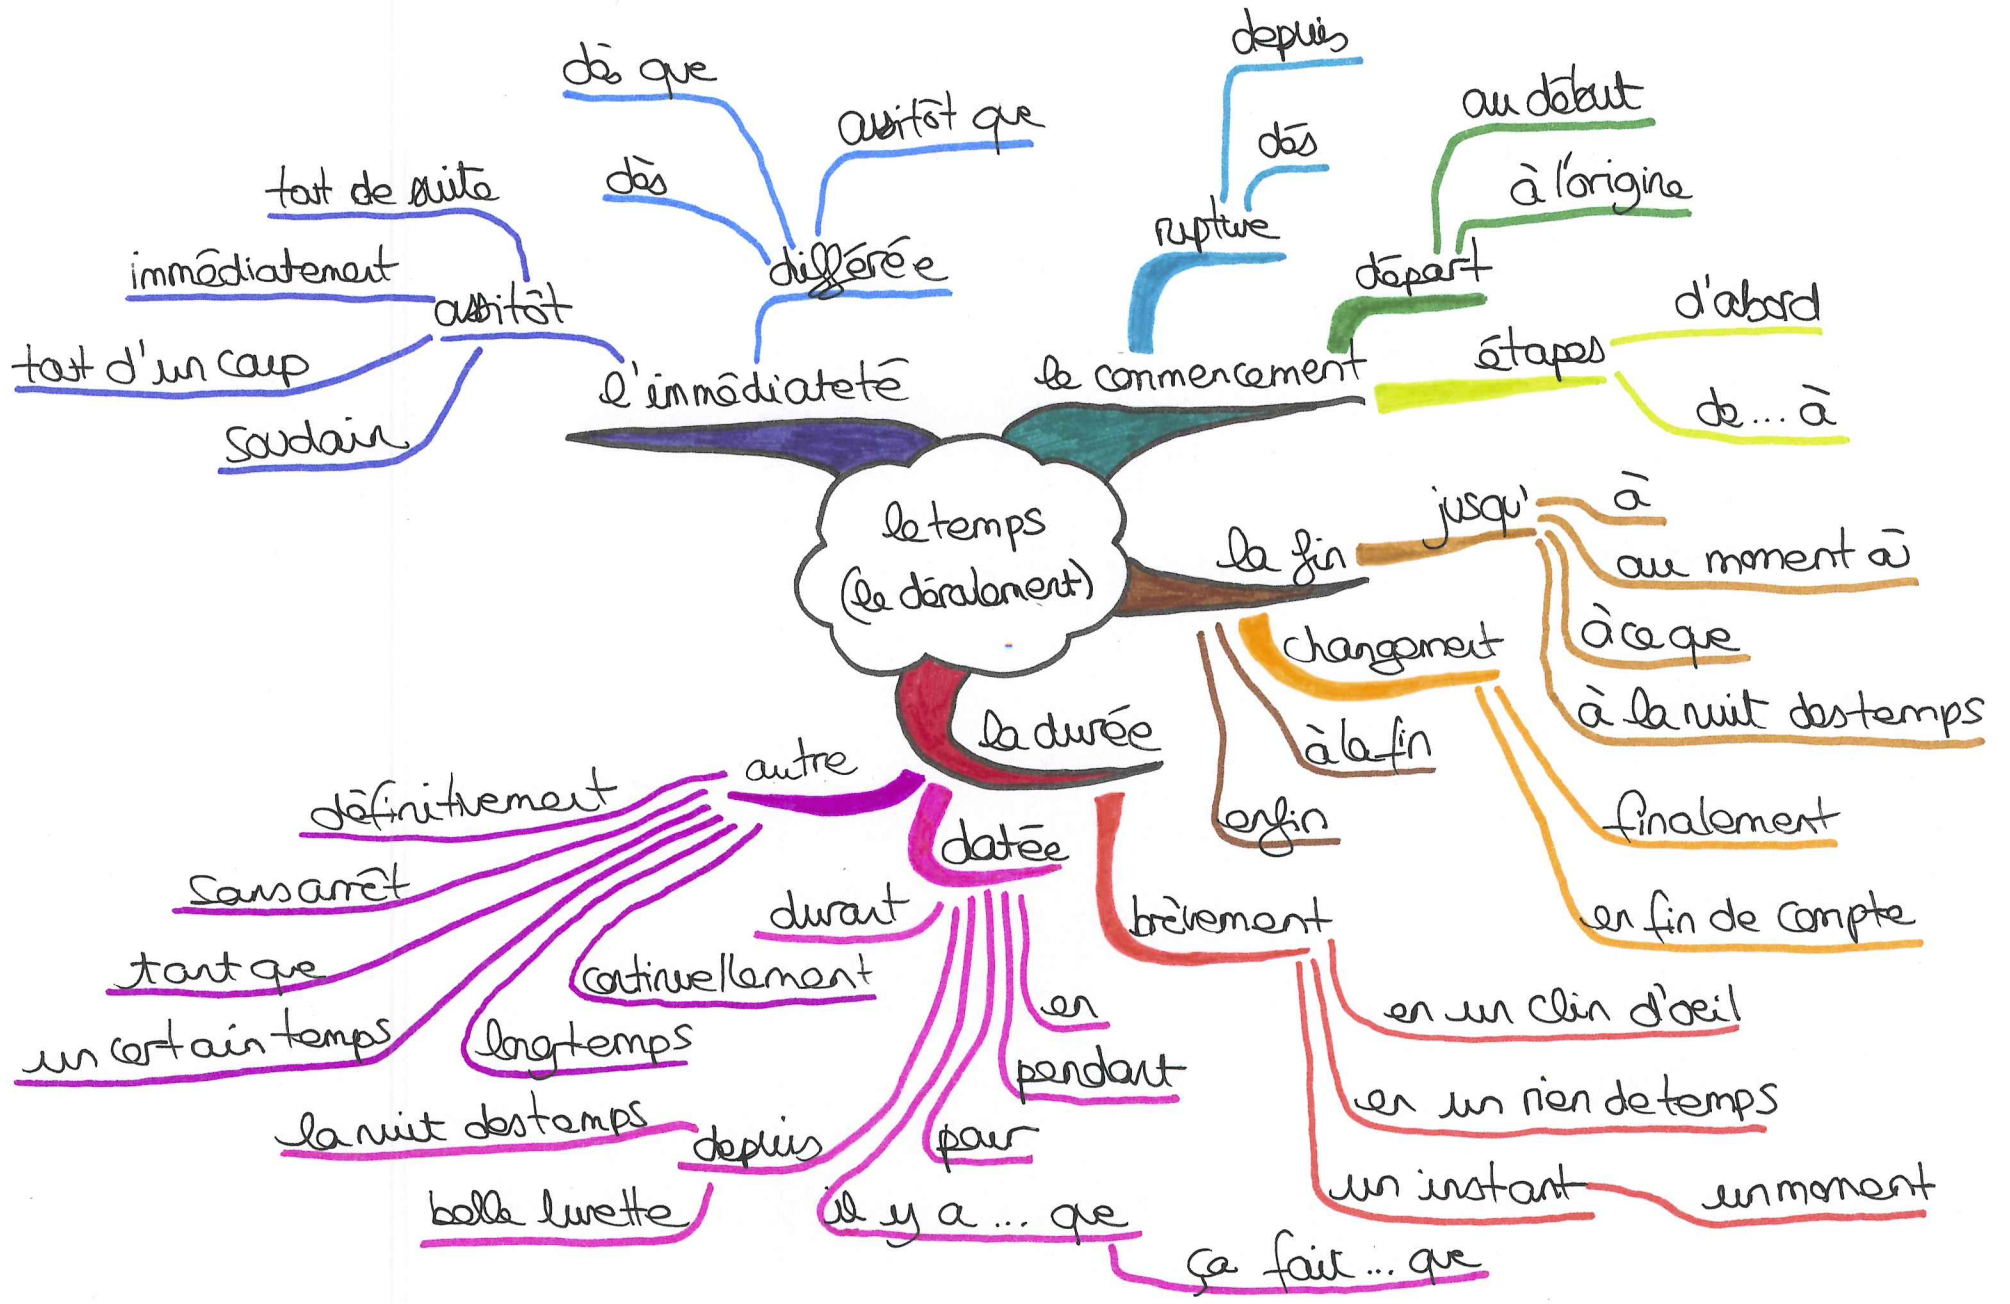 le temps
(le déroulement)
l'immédiateté
aussitôt
tout de suite
immédiatement
tout d'un coup
soudain
différée
dès que
dès
aussitôt que
le commencement
rupture
depuis
dès
départ
au début
à l'origine
étapes
d'abord
de... à
la fin
jusqu'
à
au moment où
à ce que
à la nuit des temps
changement
finalement
en fin de compte
à la fin
enfin
la durée
brèvement
en un clin d'oeil
en un rien de temps
un instant
un moment
datée
durant
en
pendant
pour
il y a ... que
ça fait ... que
depuis
la nuit des temps
belle lurette
autre
définitivement
sans arrêt
tant que
un certain temps
longtemps
continuellement